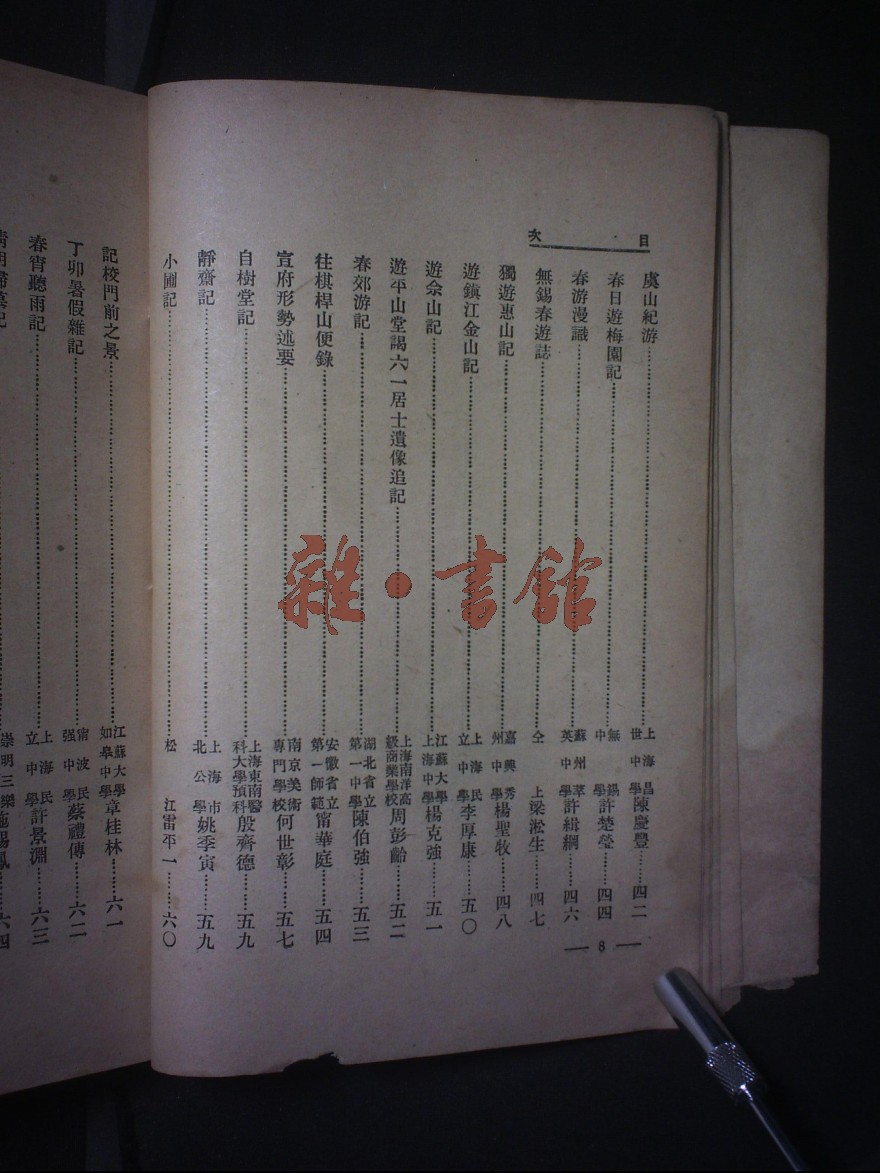 目次
虞山紀游……上海昌世中學陳慶豐……四二
春日遊梅園記……無錫中學許楚瑩……四四
春游漫識……蘇州萃英中學許緝綱……四六
無錫春遊誌……仝上梁淞生……四七
獨遊惠山記……嘉興秀州中學楊聖牧……四八
遊鎮江金山記……上海民立中學李厚康……五〇
遊佘山記……江蘇大學上海中學楊克強……五一
遊平山堂謁六一居士遺像追記……上海南洋高級商業學校周彭齡……五二
春郊游記……湖北省立第一中學陳伯強……五三
往棋桿山便錄……安徽省立第一師範甯華庭……五四
宣府形勢述要……南京美術專門學校何世彰……五七
自樹堂記……上海東南醫科大學預科殷齊德……五九
靜齋記……上海市北公學姚季寅……五九
小圃記……松江雷平一……六〇
8
記校門前之景……江蘇大學如皋中學章桂林……六一
丁卯暑假雜記……甯波民强中學蔡禮傳……六二
春宵聽雨記……上海民立中學許景淵……六三
清明掃墓記……崇明三樂施錫鳳……六四
雜·書館